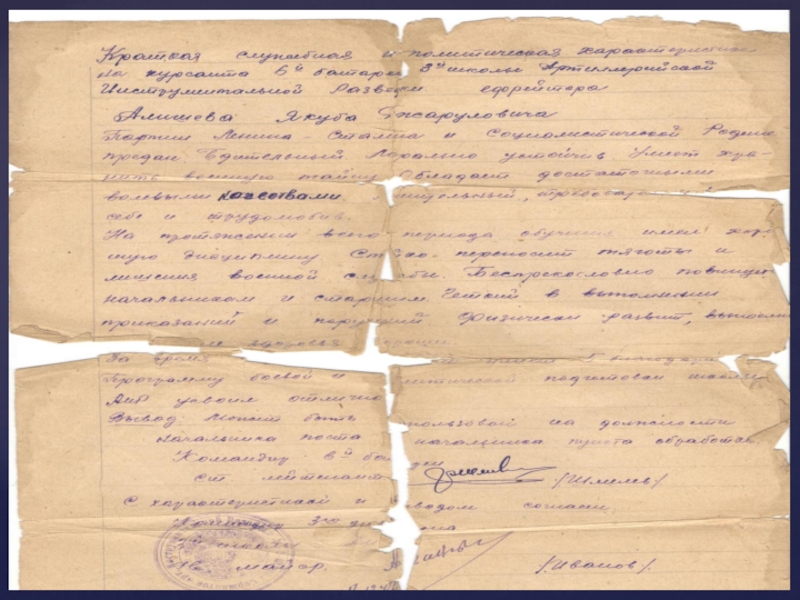 Краткая служебная и политическая характеристика
на курсанта 6й батареи 3й школы Артиллерийской
Инструментальной Разведки ефрейтора
Алишева Якуба
Партии Ленина - Сталина и Социалистической Родине
предан. Бдительный. Морально устойчив. Умеет хра-
нить военную тайну. Обладает достаточными
волевыми качествами.
себе и трудолюбив.
На протяжении всего периода обучения имел хоро
шую дисциплину. Стойко переносит тяготы и
лишения военной службы. Беспрекословно повинует
начальникам и старшим. Четкий в выполнении
приказаний и поручений. Физически развит, вынослив
За время
Программу боевой и политической подготовки школы
АИР усвоил отлично
Вывод: Может быть использован на должности
начальника поста начальника пункта обработки.
Командир батареи
ст. лейтенант /Шмелев/
С характеристикой и выводом согласен
Командир 3го дивизиона
майор /Иванов/.